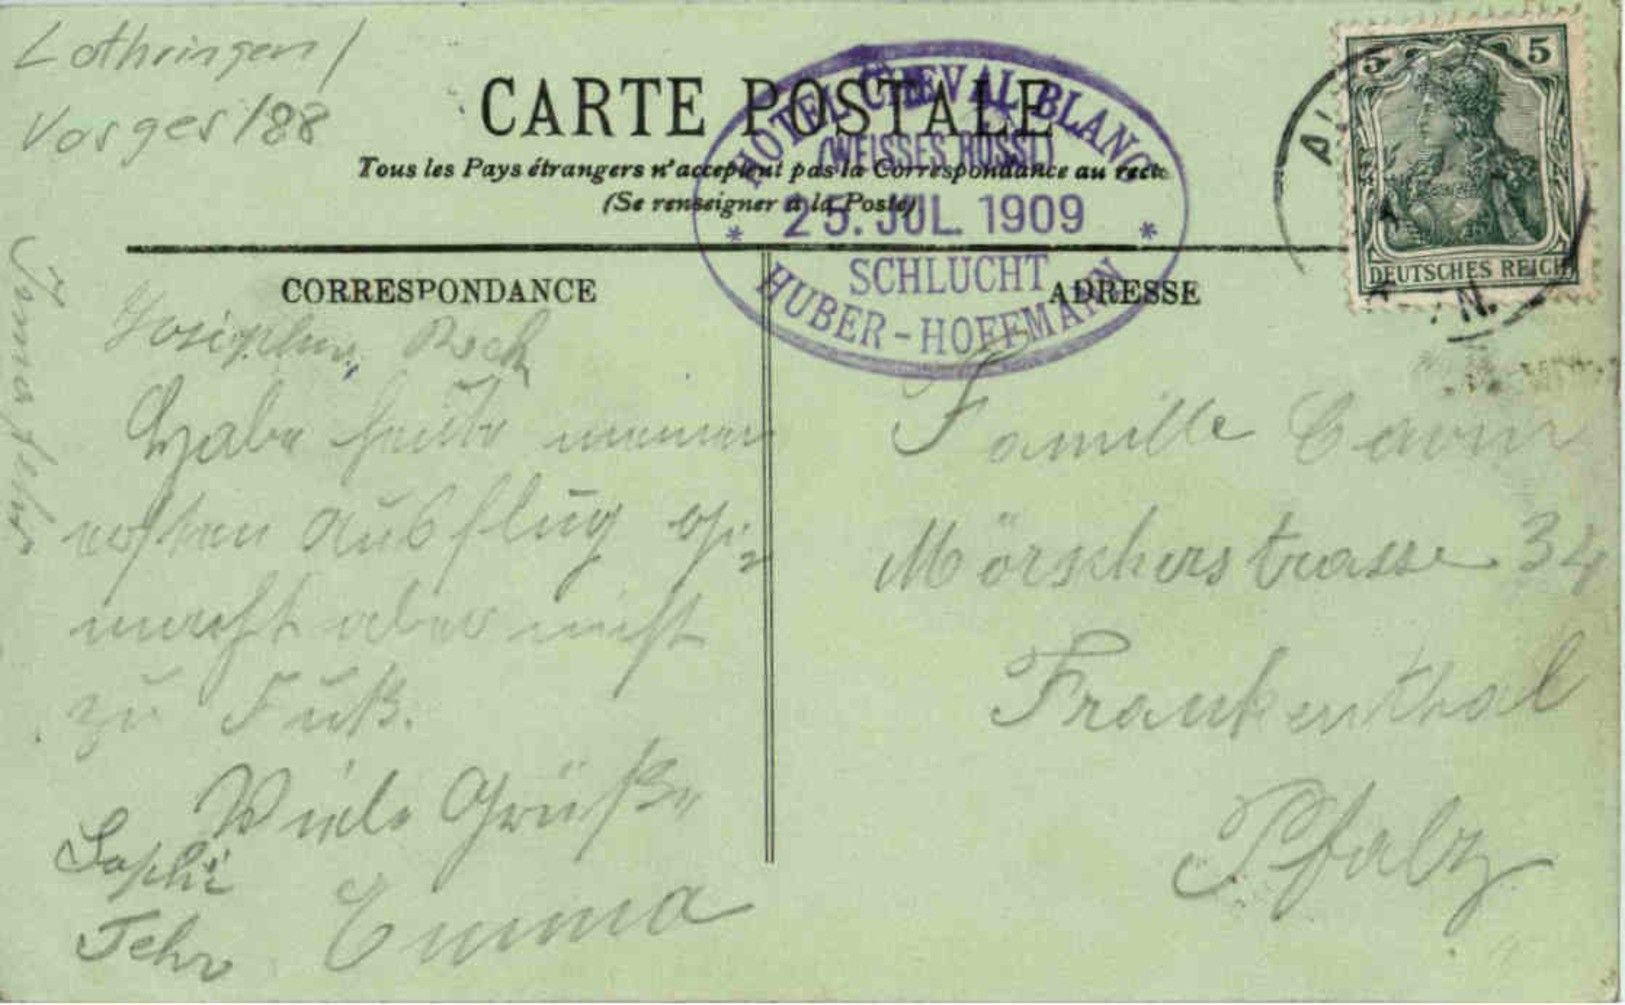 Lothringen /
Vosges /88
CARTE POSTALE
Tous les Pays étrangers n'acceptent pas la Correspondance au recto
(Se renseigner à la Poste)
HOTEL CHEVAL BLANC
(WEISSES RÖSSL)
* 25. JUL. 1909 *
SCHLUCHT
HUBER-HOFFMANN
5 5
DEUTSCHES REICH
CORRESPONDANCE
ADRESSE
Habe heute meinen
ersten Ausflug ge-
macht aber nicht
zu Fuß.
Viele Grüße
Emma
Sophie
Fehr
Familie
Mörscherstrasse 34
Frankenthal
Pfalz